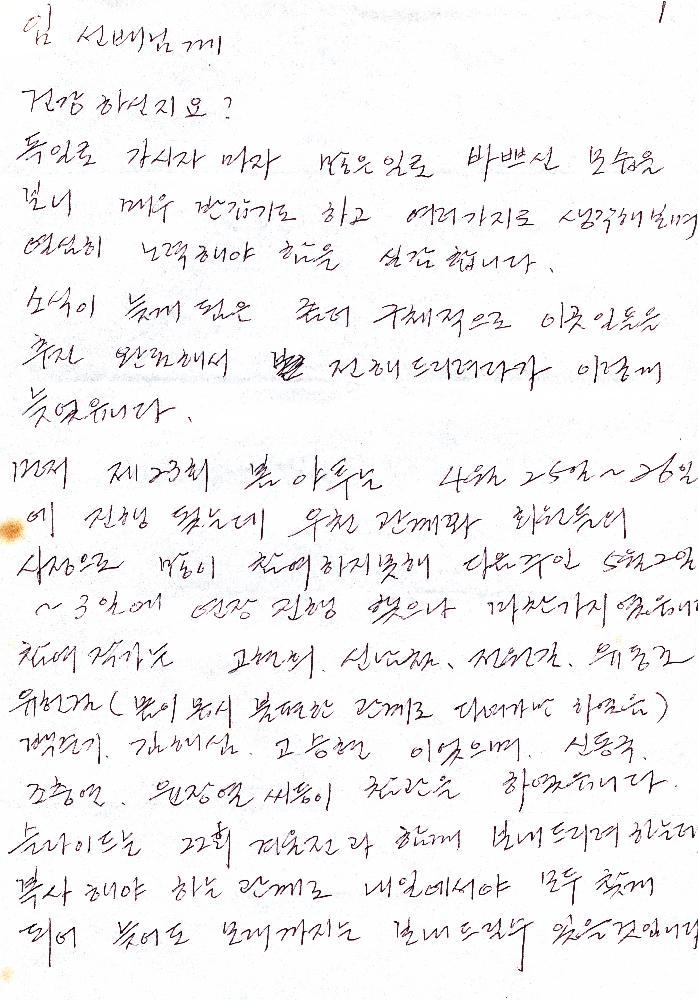 1
임 선배님께
건강 하신지요?
독일로 가시자 마자 많은일로 바쁘신 모습을
보니 매우 반갑기도 하고 여러가지로 생각해보며
열심히 노력해야 함을 실감합니다.
소식이 늦게 됨은 좀더 구체적으로 이곳일들을
추진 완료해서 전해드리려다가 이렇게
늦었읍니다.
먼저 제23회 봄 야투는 4월 25일~26일
에 진행 됐는데 우천 관계와 회원들의
사정으로 많이 참여하지못해 다음주인 5월2일
~3일에 연장 진행 했으나 마찬가지였읍니
참여 작가는 고현희. 신남철. 전원길. 유동조
유헌길(몸이 몹시 불편한 관계로 다녀가만 하였음)
백준기. 김해심. 고승현 이었으며. 신동국.
조충연. 원장열 씨등이 참관을 하였읍니다.
슬라이드는 22회 겨울전과 함께 보내드리려하는데
복사해야 하는 관계로 내일에서야 모두 찾게
되어 늦어도 모레까지는 보내드릴수 있을것입니다